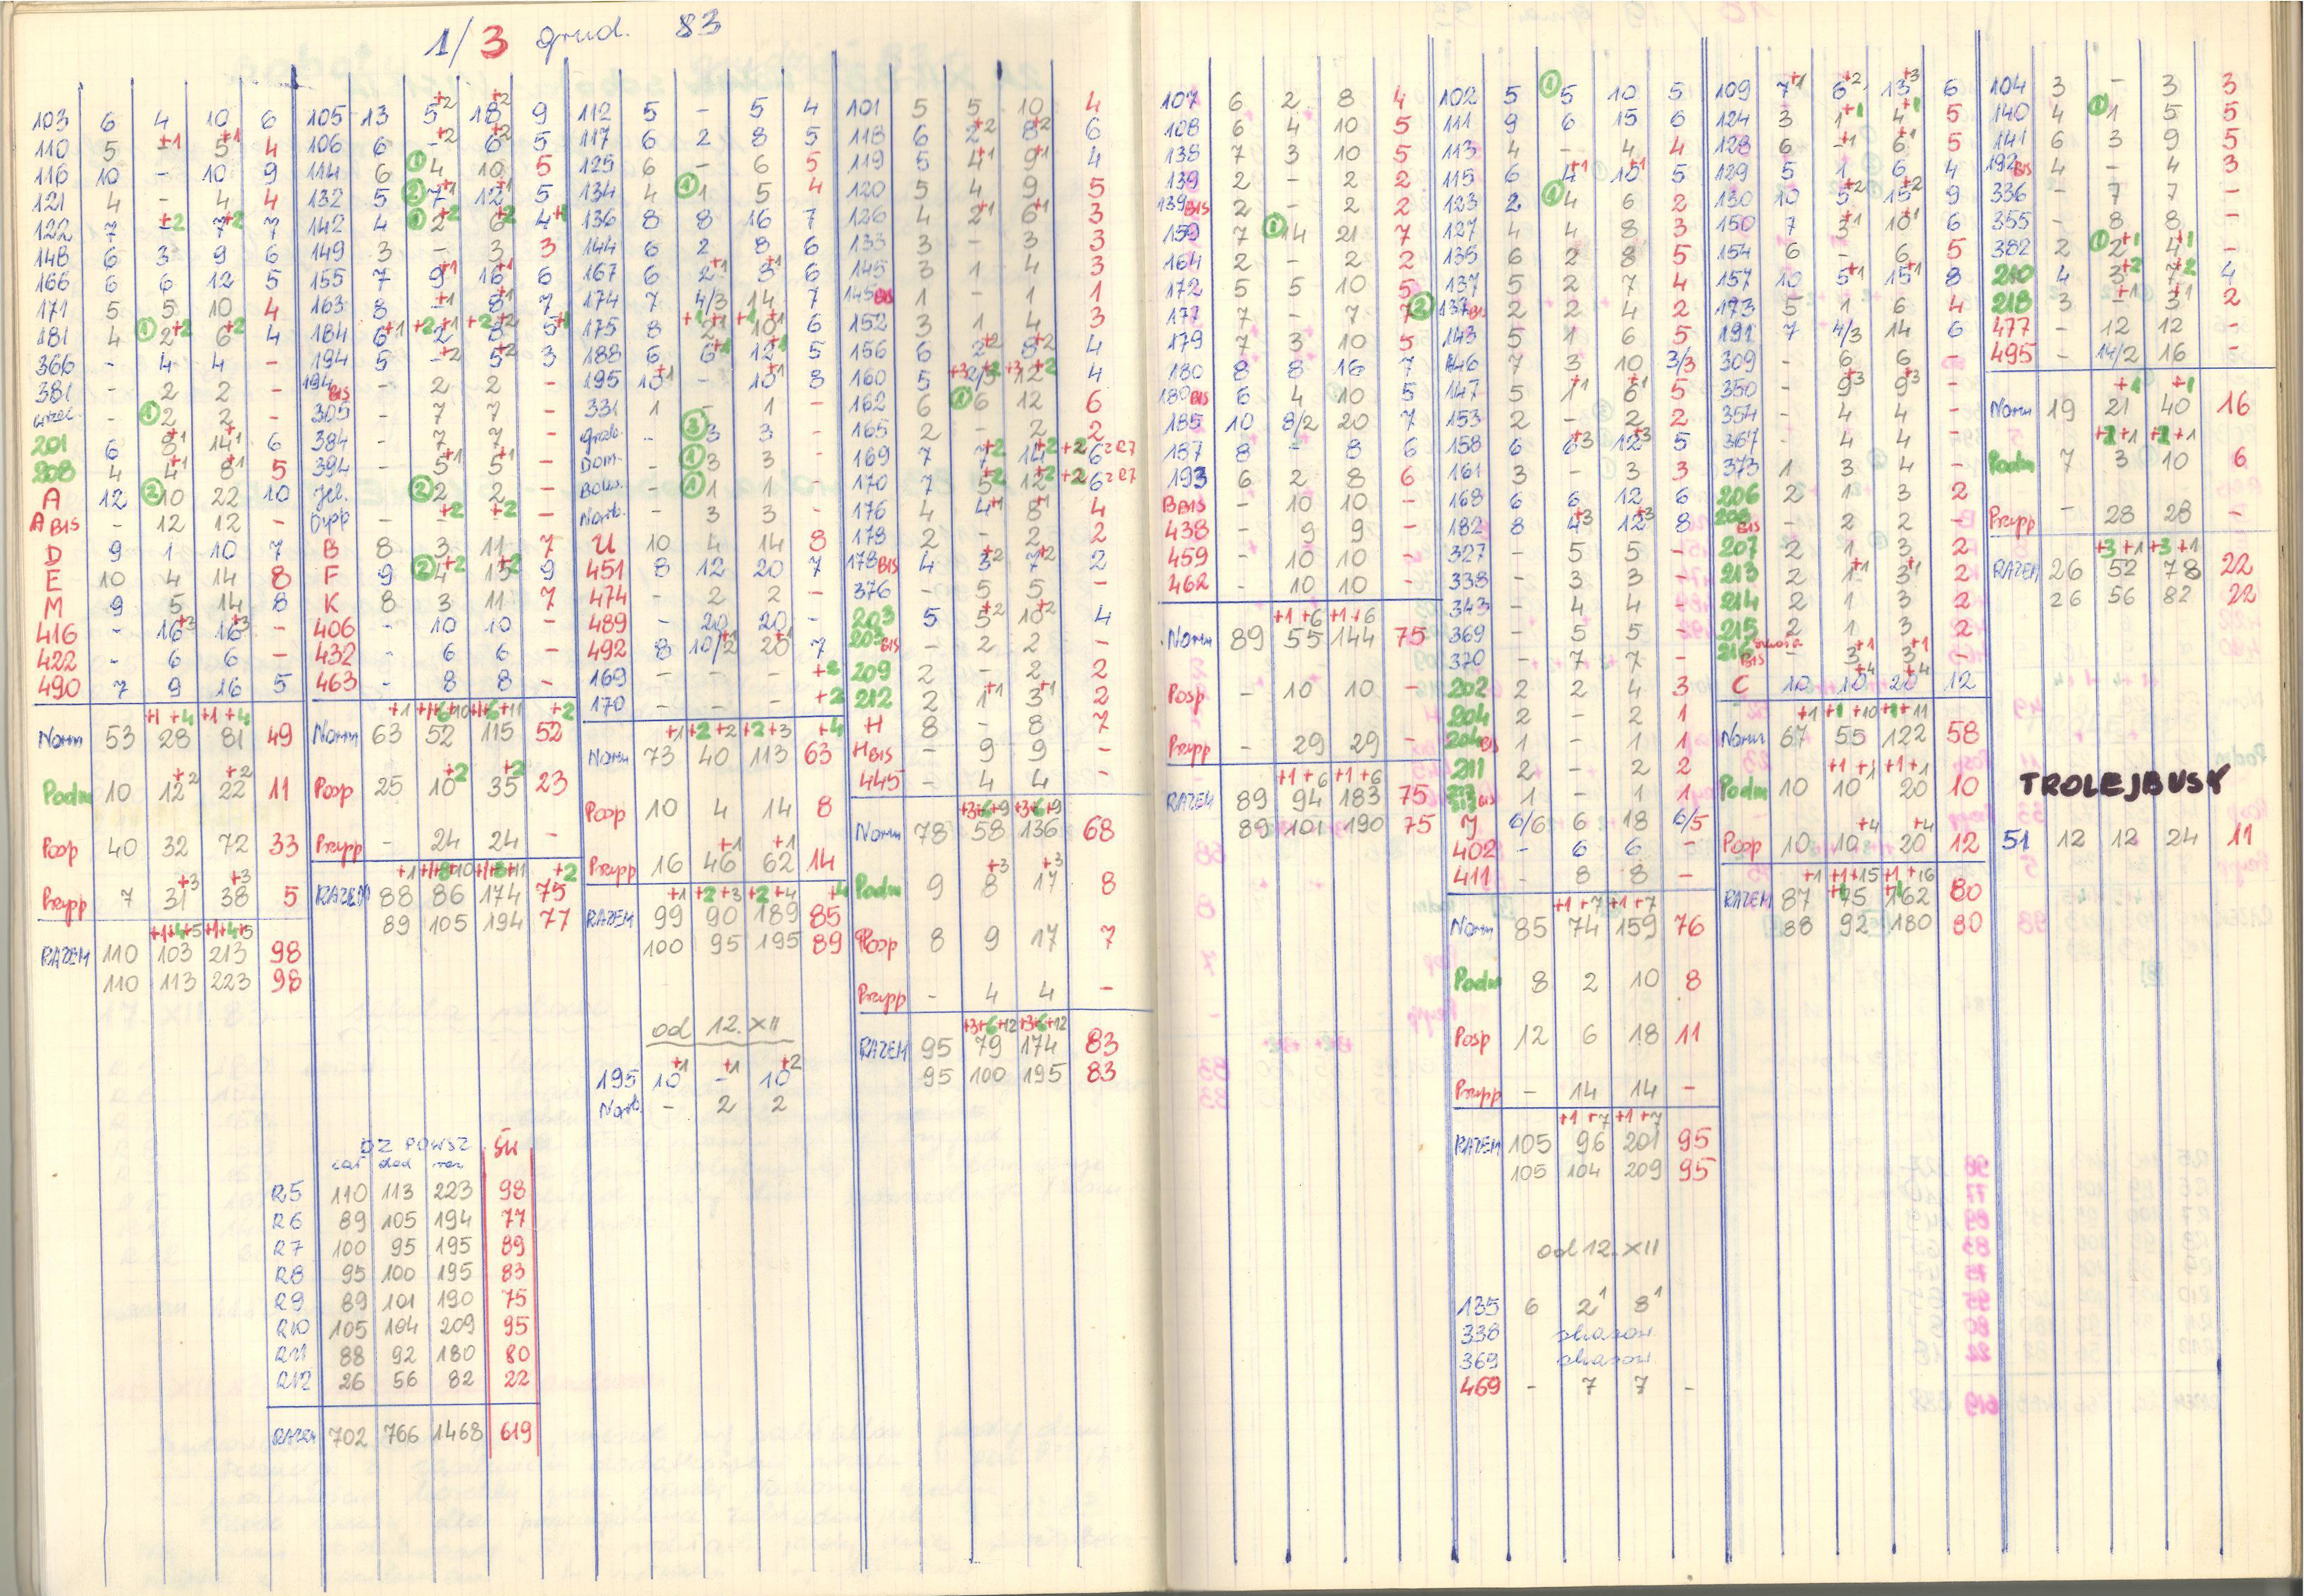 1/3 grud. 83
103 6 4 10 6
110 5 -+1 5+1 4
116 10 - 10 9
121 4 - 4 4
122 7 -+2 7+2 7
148 6 3 9 6
166 6 6 12 5
171 5 5 10 4
181 4 ① 2+2 6+2 4
366 - 4 4 -
381 - 2 2 -
- ① 2 2 -
201 6 8+1 14+1 6
208 4 4+1 8+1 5
A 12 ② 10 22 10
A BIS - 12 12 -
D 9 1 10 7
E 10 4 14 8
M 9 5 14 8
416 - 16+3 16+3 -
422 - 6 6 -
490 7 9 16 5
+1 +4 +1 +4
Norm 53 28 81 49
Podm 10 12+2 22+2 11
Posp 40 32 72 33
Przysp 7 31+3 38+3 5
+1+4+5 +1+4+5
RAZEM 110 103 213 98
110 113 223 98
105 13 5+2 18+2 9
106 6 -+2 6+2 5
114 6 ① 4 10 5
132 5 ② 7+1 12+1 5
142 4 ① 2+2 6+2 4+1
149 3 - 3 3
155 7 9+1 16+1 6
163 8 -+1 8+1 7
184 6+1 +2 2+1 +2 8+2 5+1
194 5 -+2 5+2 3
194 BIS - 2 2 -
305 - 7 7 -
384 - 7 7 -
394 - 5+1 5+1 -
Jel. - ② 2 2 -
- -+2 -+2 -
B 8 3 11 7
F 9 ② 4+2 13+2 9
K 8 3 11 7
406 - 10 10 -
432 - 6 6 -
463 - 8 8 -
Norm 63 52 115 52
Posp 25 10+2 35+2 23
Przysp - 24 24 -
RAZEM 88 86 174 75
89 105 194 77
112 5 - 5 4
117 6 2 8 5
125 6 - 6 5
134 4 ① 1 5 4
136 8 8 16 7
144 6 2 8 6
167 6 2+1 8+1 6
174 7 4/3 14 7
175 8 +1 2+1 +1 10+1 6
188 6 6+1 12+1 5
195 10+1 - 10+1 8
331 1 - 1 -
grab. - ③ 3 3 -
Dom. - ① 3 3 -
- ① 1 1 -
Norb. - 3 3 -
U 10 4 14 8
451 8 12 20 7
474 - 2 2 -
489 - 20 20 -
492 8 10/2+1 20+1 7
169 - - - +2
170 - - - +2
+1 +2 +2 +2 +3 +4
Norm 73 40 113 63
Posp 10 4 14 8
Przysp 16 46+1 62+1 14
+1 +2 +3 +2 +4 +4
RAZEM 99 90 189 85
100 95 195 89
od 12.XII
195 10+1 -+1 10+2
Norb. - 2 2
101 5 5 10 4
118 6 2+2 8+2 6
119 5 4+1 9+1 4
120 5 4 9 5
126 4 2+1 6+1 3
133 3 - 3 3
145 3 1 4 3
145 BIS 1 - 1 1
152 3 1 4 3
156 6 2+2 8+2 4
160 5 +3 2/5+2 +3 12+2 4
162 6 ① 6 12 6
165 2 - 2 2
169 7 7+2 14+2 +2 6 z R7
170 7 5+2 12+2 +2 6 z R7
176 4 4+1 8+1 4
178 2 - 2 2
178 BIS 4 3+2 7+2 2
376 - 5 5 -
203 5 5+2 10+2 4
203 BIS - 2 2 -
209 2 - 2 2
212 2 1+1 3+1 2
H 8 - 8 7
H BIS - 9 9 -
445 - 4 4 -
+3+6+9 +3+6+9
Norm 78 58 136 68
Podm 9 8+3 17+3 8
Posp 8 9 17 7
Przysp - 4 4 -
+3+6+12 +3+6+12
RAZEM 95 79 174 83
95 100 195 83
DZ POWSZ Św
cał dod raz
R5 110 113 223 98
R6 89 105 194 77
R7 100 95 195 89
R8 95 100 195 83
R9 89 101 190 75
R10 105 104 209 95
R11 88 92 180 80
R12 26 56 82 22
RAZEM 702 766 1468 619
107 6 2 8 4
108 6 4 10 5
138 7 3 10 5
139 2 - 2 2
139 BIS 2 - 2 2
159 7 ① 14 21 7
164 2 - 2 2
172 5 5 10 5
177 7 - 7 7
179 7 3 10 5
180 8 8 16 7
180 BIS 6 4 10 5
185 10 8/2 20 7
187 8 - 8 6
193 6 2 8 6
B BIS - 10 10 -
438 - 9 9 -
459 - 10 10 -
462 - 10 10 -
+1 +6 +1 +6
Norm 89 55 144 75
Posp - 10 10 -
Przysp - 29 29 -
+1 +6 +1 +6
RAZEM 89 94 183 75
89 101 190 75
102 5 ① 5 10 5
111 9 6 15 6
113 4 - 4 4
115 6 4+1 10+1 5
123 2 ① 4 6 2
127 4 4 8 3
135 6 2 8 5
137 5 2 7 4
② 137 BIS 2 2 4 2
143 5 1 6 5
146 7 3 10 3/3
147 5 1+1 6+1 5
153 2 - 2 2
158 6 6+3 12+3 5
161 3 - 3 3
168 6 6 12 6
182 8 4+3 12+3 8
327 - 5 5 -
338 - 3 3 -
343 - 4 4 -
369 - 5 5 -
370 - 7 7 -
202 2 2 4 3
204 2 - 2 1
204 BIS 1 - 1 1
211 2 - 2 2
BIS 1 - 1 1
Y 6/6 6 18 6/5
402 - 6 6 -
411 - 8 8 -
+1 +7 +1 +7
Norm 85 74 159 76
Podm 8 2 10 8
Posp 12 6 18 11
Przysp - 14 14 -
+1 +7 +1 +7
RAZEM 105 96 201 95
105 104 209 95
od 12.XII
135 6 2¹ 8¹
338 skasow.
369 skasow.
469 - 7 7 -
109 7+1 6+2 13+3 6
124 3 1+1 4+1 5
128 6 -+1 6+1 5
129 5 1 6 4
130 10 5+2 15+2 9
150 7 3+1 10+1 6
154 6 - 6 5
157 10 5+1 15+1 8
173 5 1 6 4
191 7 4/3 14 6
309 - 6 6 -
350 - 9+3 9+3 -
354 - 4 4 -
367 - 4 4 -
373 1 3 4 -
206 2 1 3 2
BIS - 2 2 -
207 2 1 3 2
213 2 1+1 3+1 2
214 2 1 3 2
215 2 1 3 2
216 BIS - 3+1 3+1 -
C 10 10+4 20+4 12
Norm 67 55 122 58
Podm 10 10 20 10
Posp 10 10+4 20+4 12
RAZEM 87 75 162 80
88 92 180 80
104 3 - 3 3
140 4 ① 1 5 5
141 6 3 9 5
192 BIS 4 - 4 3
336 - 7 7 -
355 - 8 8 -
382 2 ① 2+1 4+1 -
210 4 3+2 7+2 4
218 3 -+1 3+1 2
477 - 12 12 -
495 - 14/2 16 -
+1 +1
Norm 19 21 40 16
+2+1 +2+1
Podm 7 3 10 6
Przysp - 28 28 -
+3 +1 +3 +1
RAZEM 26 52 78 22
26 56 82 22
TROLEJBUSY
51 12 12 24 11